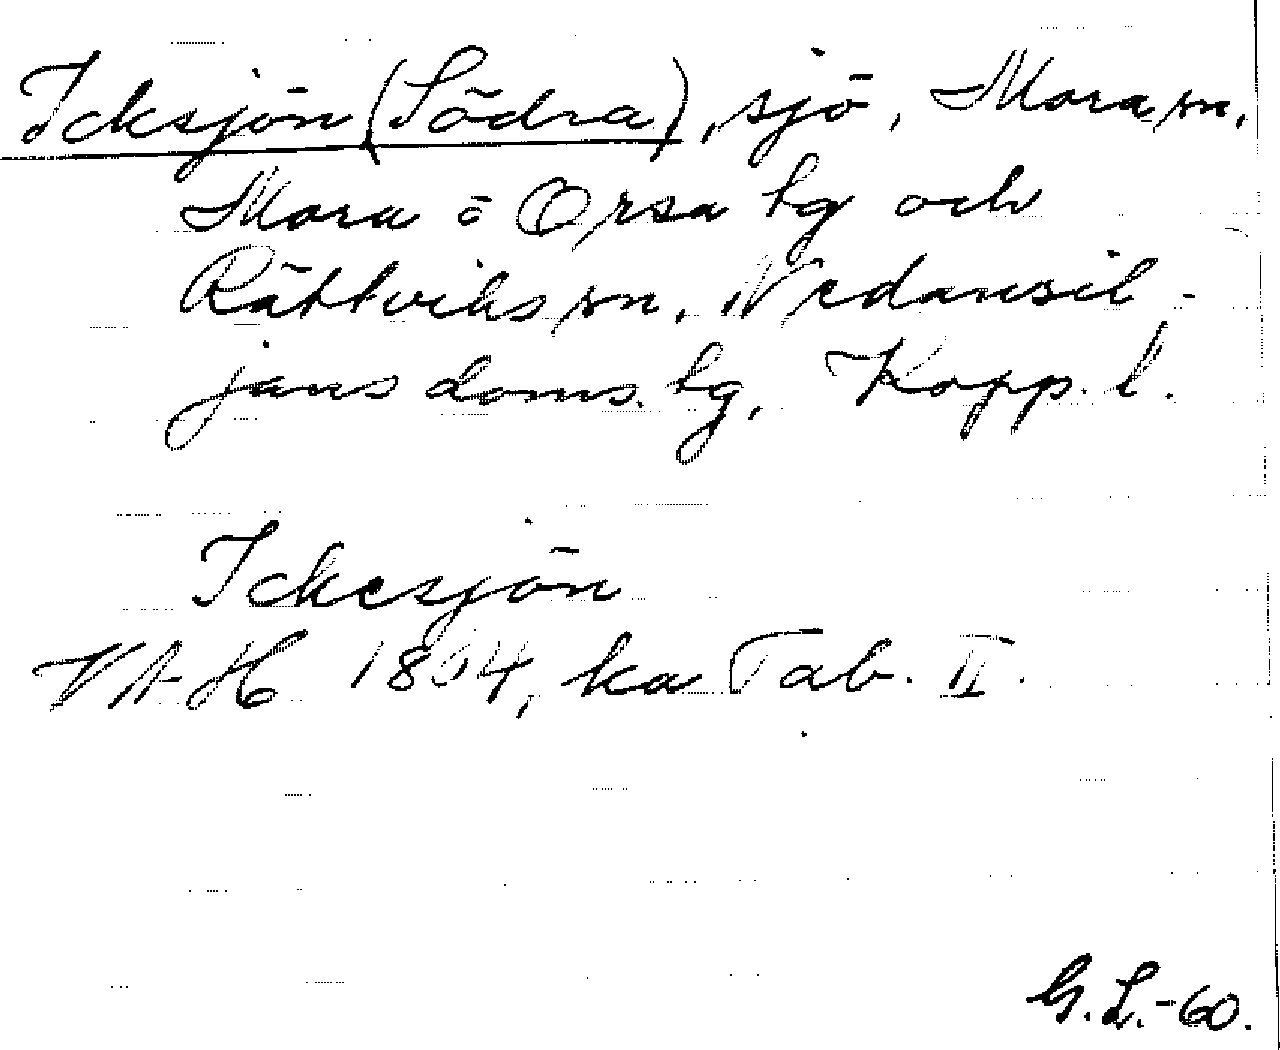 Icksjön (Södra), sjö, Mora sn,
Mora o Orsa tg och
Rättviks sn, Nedansil-
jans doms. tg, Kopp. l.
Ickesjön
VAH 1804, ka Tab. II.
G. L.-60.